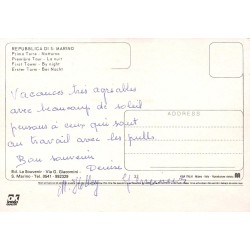 REPUBBLICA DI S. MARINO
Prima Torre - Notturno
Première Tour - La nuit
First Tower - By night
Erster Turm - Bei Nacht
Vacances très agréables
avec beaucoup de soleil
pensons à ceux qui sont
au travail avec les pulls
Bon souvenir
Denise
ADDRESS
Ed. La Souvenir - Via G. Giacomini -
S. Marino - Tel. 0541 - 992329